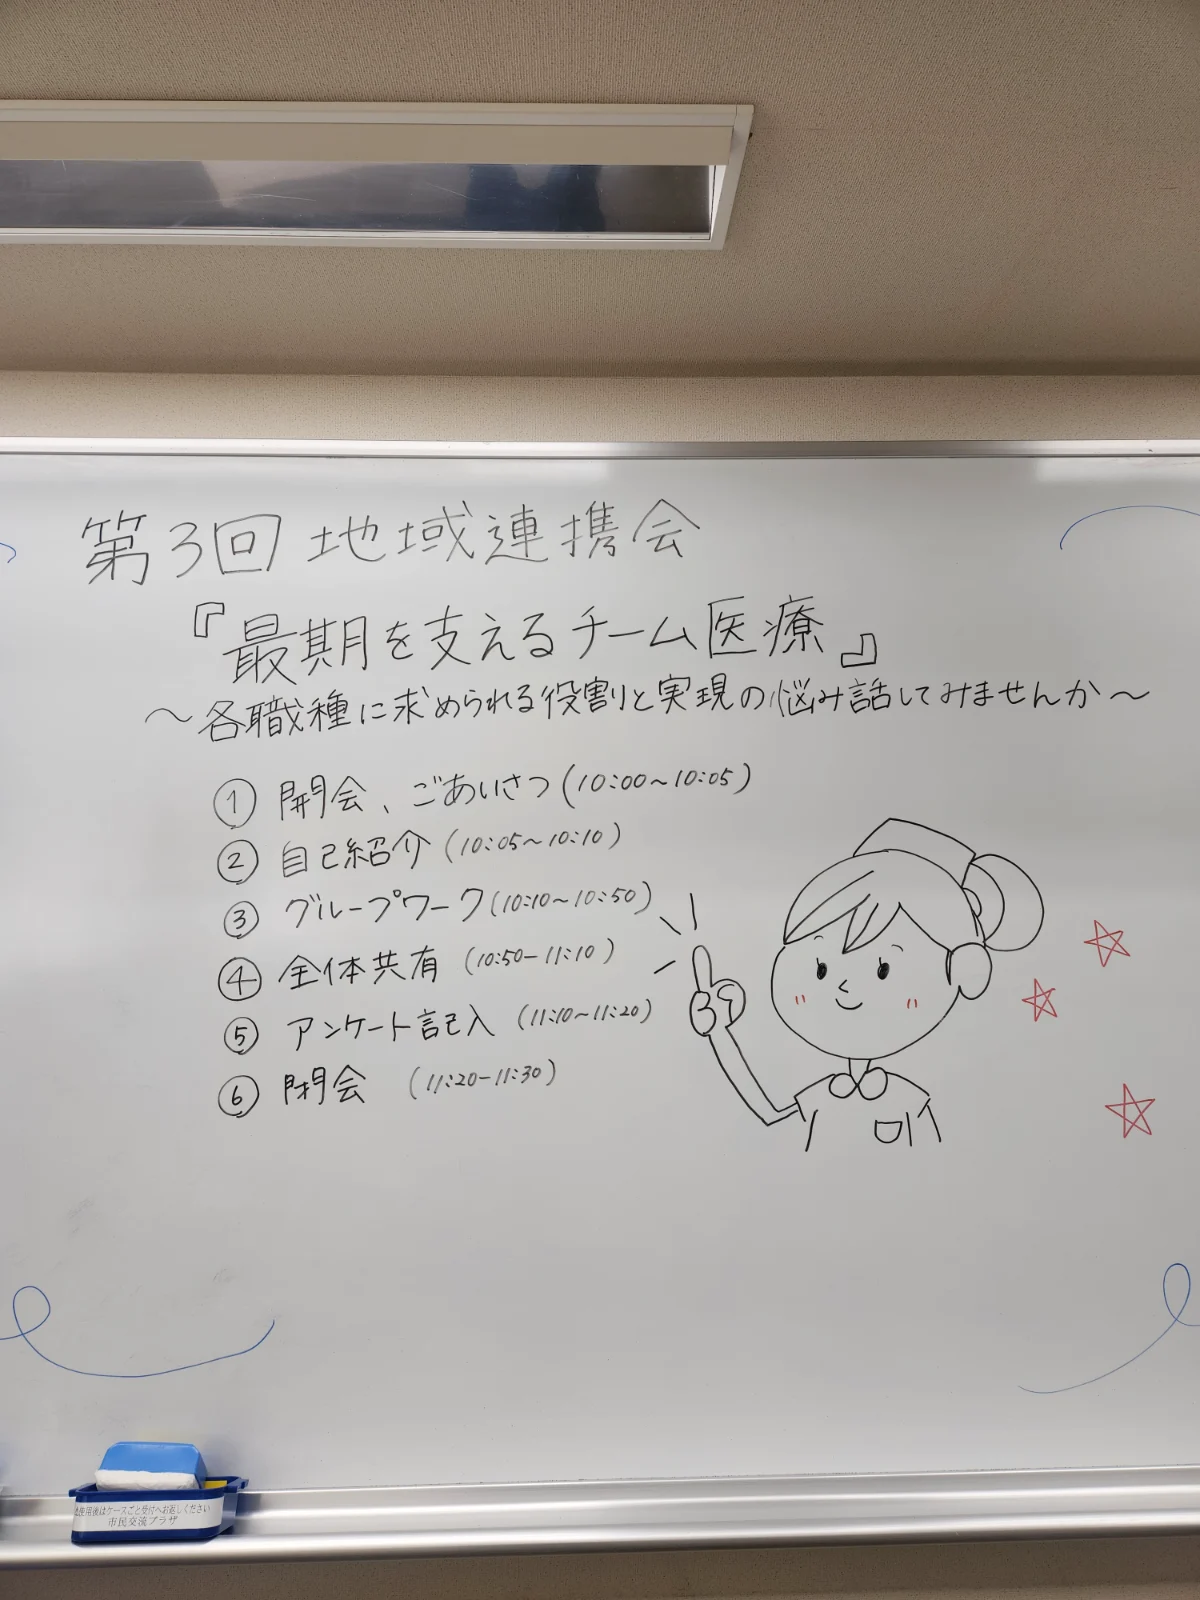 第3回 地域連携会
『最期を支えるチーム医療』
～各職種に求められる役割と実現の悩み話してみませんか～
① 開会、ごあいさつ(10:00～10:05)
② 自己紹介(10:05～10:10)
③ グループワーク(10:10～10:50)
④ 全体共有(10:50-11:10)
⑤ アンケート記入(11:10～11:20)
⑥ 閉会(11:20-11:30)
使用後はケースごと受付へお返しください
市民交流プラザ